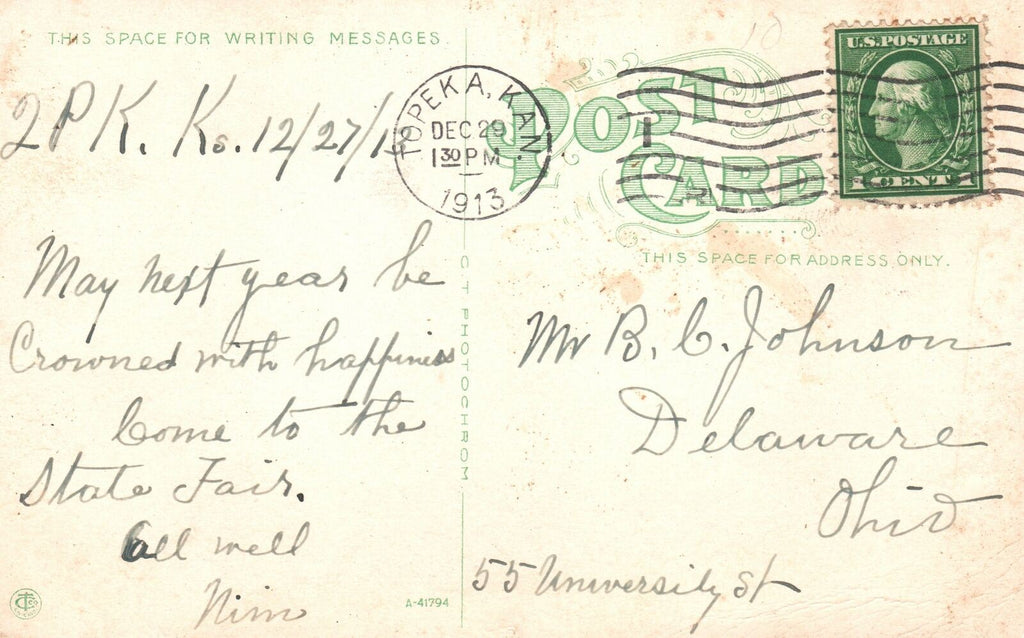 THIS SPACE FOR WRITING MESSAGES
POST CARD
U.S. POSTAGE
1 CENT 1
TOPEKA, KAN.
DEC 29
1 30 PM
1913
THIS SPACE FOR ADDRESS ONLY.
K. Ks. 12/27/1
May next year be
Crowned with happiness
Come to the
State Fair.
All well
Nim
C T PHOTOCHROM
A-41794
Mr B. C. Johnson
Delaware
Ohio
55 University St